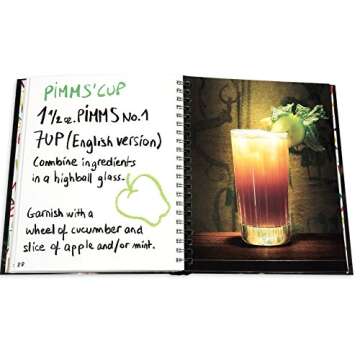 PiMMS' CUP
1 1/2 oz. PiMMS No. 1
7UP (English version)
Combine ingredients
in a highball glass.
Garnish with a
wheel of cucumber and
slice of apple and/or mint.